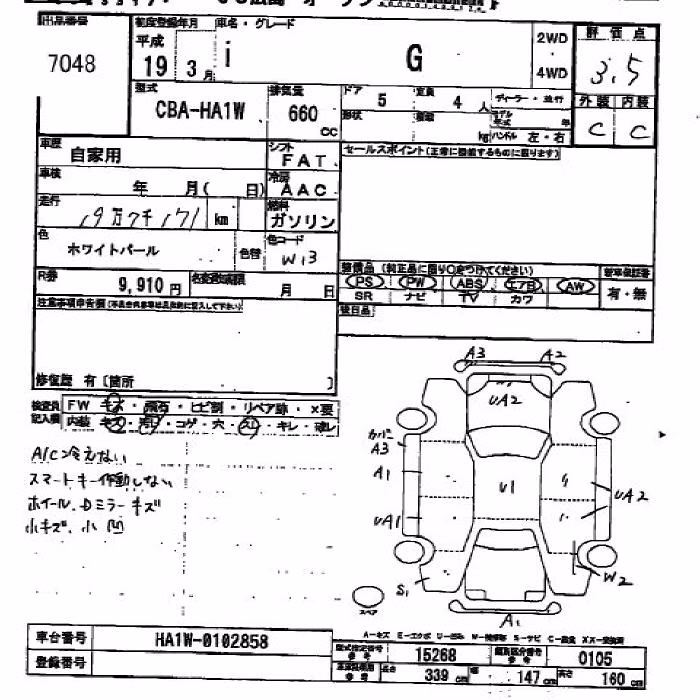 出品番号 7048
初度登録年月 平成 19 3月
車名・グレード i G
2WD
4WD
評価点 3.5
外装 内装
C C
型式 CBA-HA1W
排気量 660 CC
ドア 5 定員 4人
ディーラー・並行
形状 積載 kg
モデル年式 年
ハンドル 左・右
車歴 自家用
シフト FAT
セールスポイント(正常に機能するものに限ります)
車検 年 月( 日)
冷房 AAC
走行 19万7千171 km
燃料 ガソリン
色 ホワイトパール 色替
色コード W13
R券 9,910円
名変期限 月 日
装備品 (純正品に限り○をつけてください)
PS PW ABS エアB AW
SR ナビ TV カワ
新車保証書 有・無
後日品
注意事項申告欄
修復歴 有 [箇所 ]
検査員記入欄
FW キズ・飛石・ヒビ割・リペア跡・X要
内装 キズ・汚レ・コゲ・穴・スレ・キレ・破レ
A/C冷えない
スマートキー作動しない
ホイール、Dミラーキズ
小キズ、小凹
A3 A2
UA2
カバー A3
A1
U1
UA2
UA1
W2
S1
A1
スペア
A-キズ E-エクボ U-凹み W-補修跡 S-サビ C-腐食 XX-交換済
車台番号 HA1W-0102858
登録番号
型式指定番号 参考 15268
類別区分番号 参考 0105
長さ 339 cm 幅 147 cm 高さ 160 cm